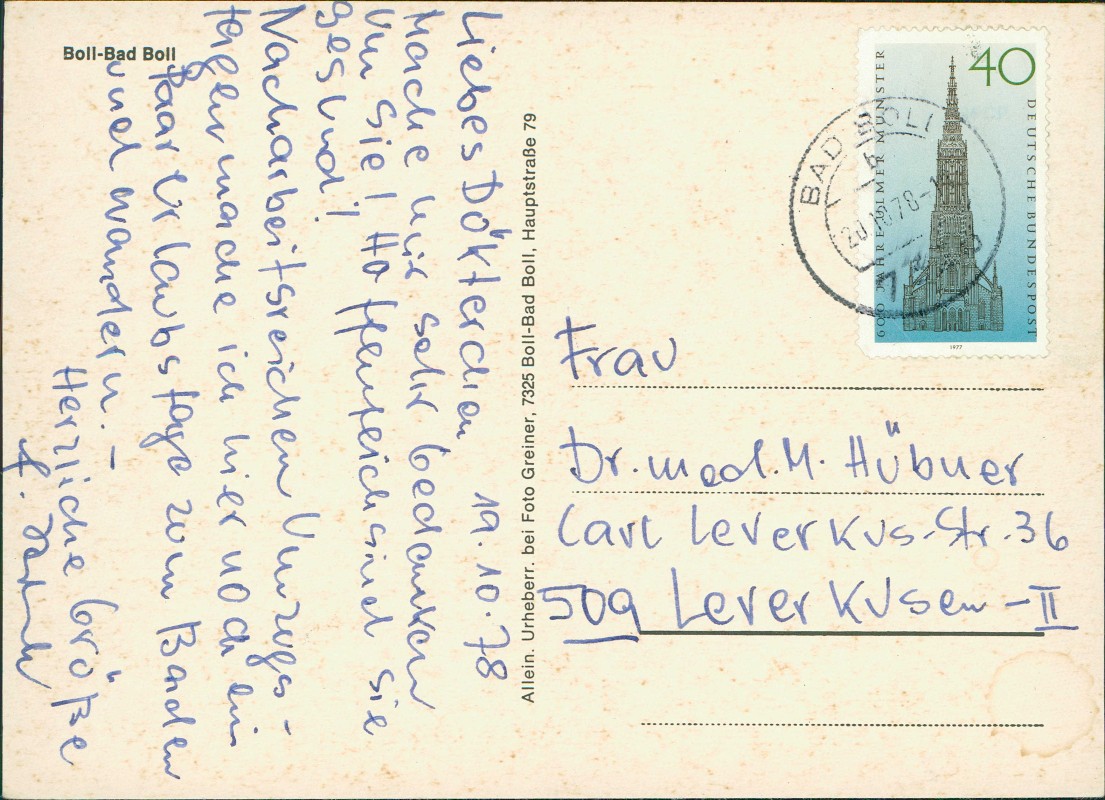 Boll-Bad Boll
Liebes Dökterchen 19.10.78
Mache mir sehr Gedanken
Um Sie! Hoffentlich sind Sie
gesund!
Nach arbeitsreichen Umzugs-
tagen mache ich hier noch ein
paar Urlaubstage zum Baden
und wandern. –
Herzliche Größe
Allein. Urheberr. bei Foto Greiner, 7325 Boll-Bad Boll, Hauptstraße 79
40
600 JAHRE ULMER MÜNSTER
DEUTSCHE BUNDESPOST
1977
BAD BOLL
20.10.78-1
Frau
Dr. med. M. Hübner
Carl Leverkus-Str. 36
509 Leverkusen-II